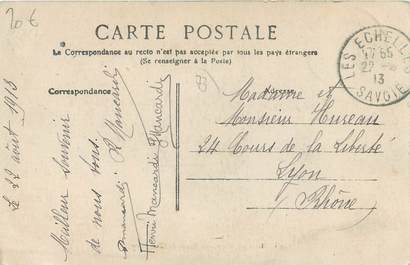 20 €
CARTE POSTALE
La Correspondance au recto n'est pas acceptée par tous les pays étrangers
(Se renseigner à la Poste)
Correspondance
Adresse
Le 22 août 1913
Meilleur souvenir
de nous tous.
Henri Mancardi
Madame et
Monsieur Hureau
24 Cours de la Liberté
Lyon
Rhône
LES ECHELLES
22
13
SAVOIE